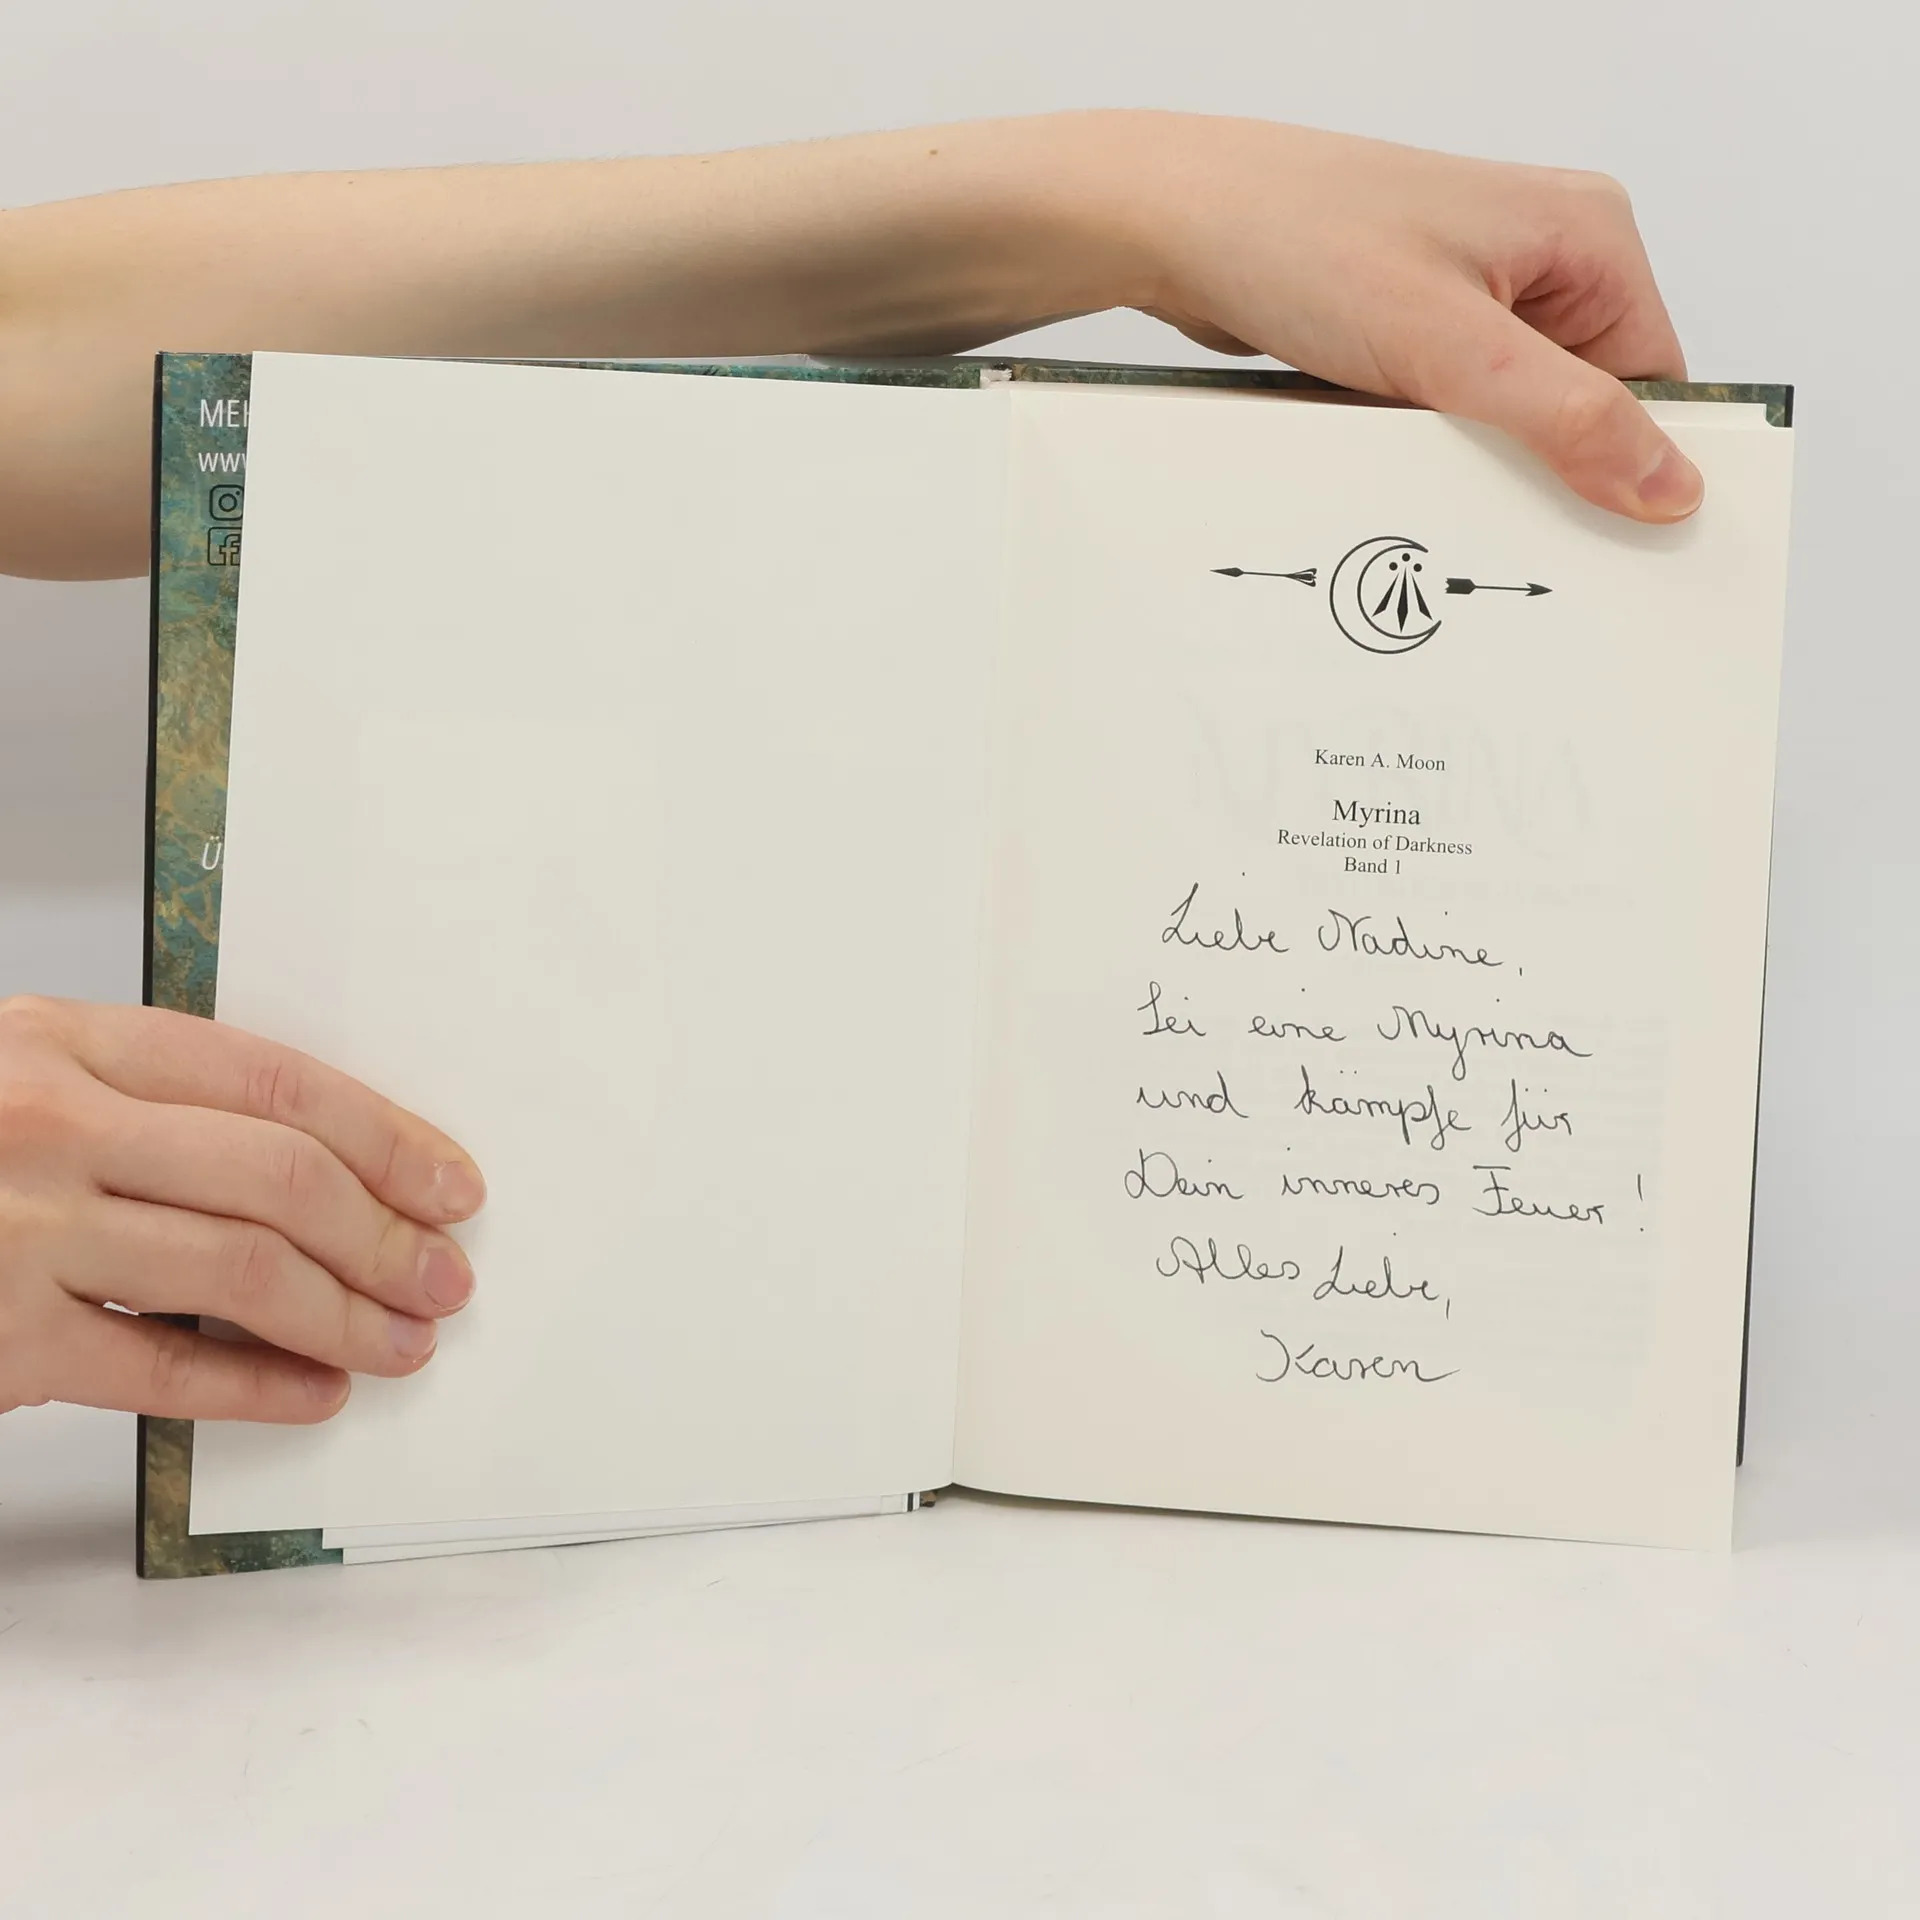 Karen A. Moon
Myrina
Revelation of Darkness
Band 1
Liebe Nadine,
Sei eine Myrina
und kämpfe für
Dein inneres Feuer!
Alles Liebe,
Karen